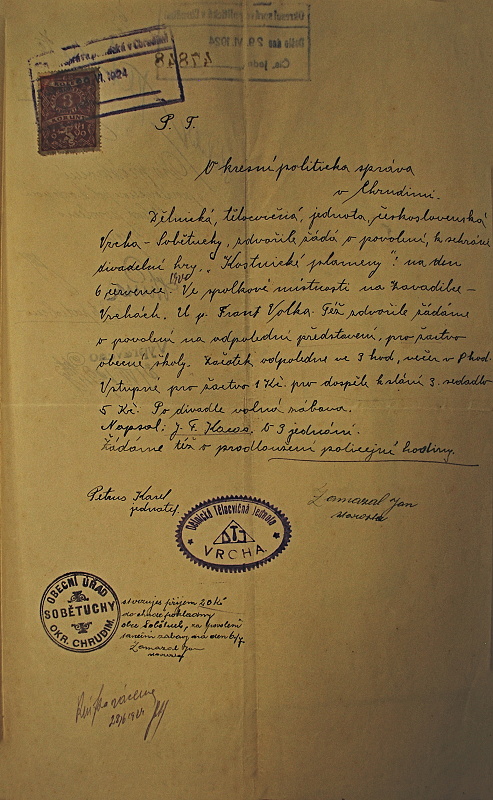 v Chrudimi
1924
3
P. T.
Okresní politická správa
v Chrudimi.
Dělnická, tělocvičná, jednota, československá
Vrcha – Sobětuchy, zdvořile žádá o povolení, k sehrání
divadelní hry, „Kostnické plameny"! na den
6 července. 1924 Ve spolkové místnosti na Zavadilce –
Vrchách. U p. Frant Volka. Též zdvořile žádáme
o povolení na odpolední představení, pro žactvo
obecné školy. Začátek odpoledne ve 3 hod, večer v 8 hod.
Vstupné pro žactvo 1 Kč. pro dospělé k stání 3. sedadlo
5 Kč. Po divadle volná zábava.
Napsal: J. F. Karas, o 3 jednání.
Žádáme též o prodloužení policejní hodiny.
Petrus Karel
jednatel.
Zamazal Jan
starosta
Dělnická Tělocvičná Jednota
DTJ
VRCHA.
OBECNÍ ÚŘAD
SOBĚTUCHY
OKR. CHRUDIM.
stvrzuje příjem 20 Kč
do chudé pokladny
obce Sobětuch, za povolení
taneční zábavy na den 6/7.
Zamazal Jan
starosta
28/6 1924